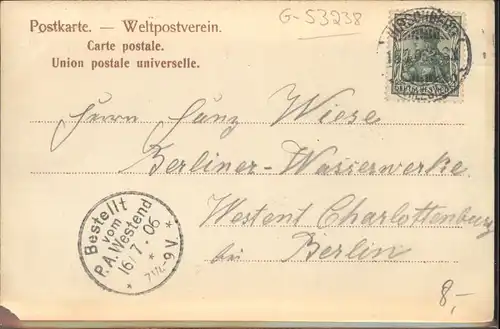 G-53238
Postkarte. — Weltpostverein.
Carte postale.
Union postale universelle.
Herrn Hanz Wiese
Berliner-Wasserwerke
Westent Charlottenburg
bei Berlin
Bestellt
vom
P.A. Westend
16/7. 06
7¼-9V.
8,-